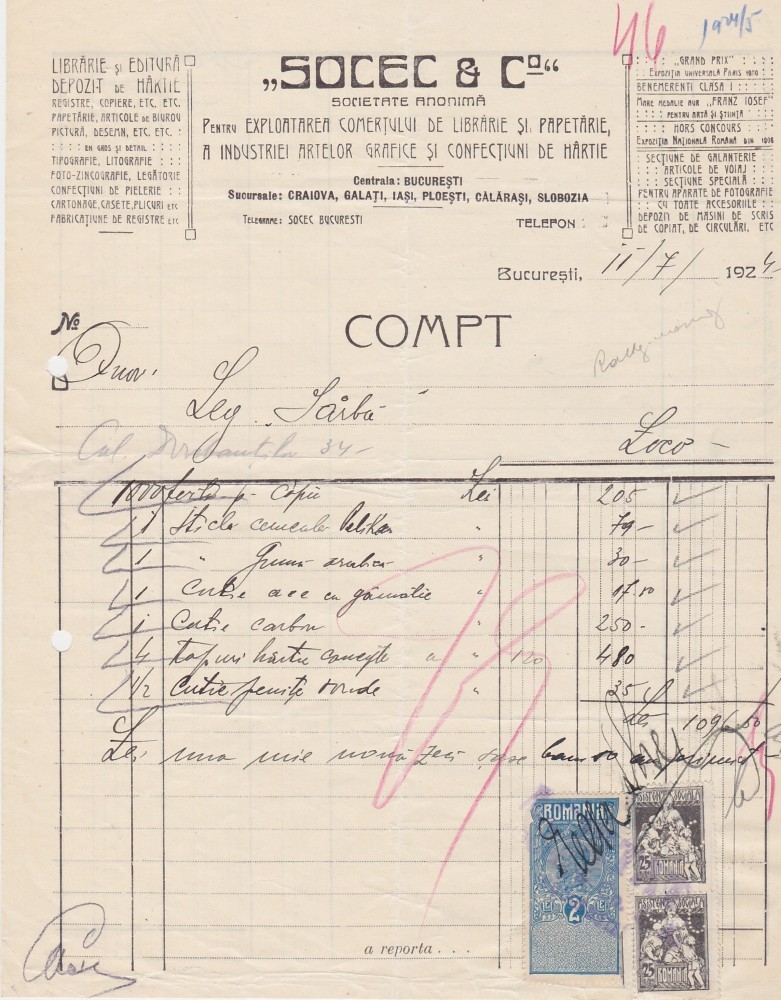 46
1924/5
LIBRĂRIE ȘI EDITURĂ
DEPOZIT DE HÂRTIE
REGISTRE, COPIERE, ETC. ETC.
PAPETĂRIE, ARTICOLE DE BIUROU
PICTURĂ, DESEMN, ETC. ETC.
EN GROS ȘI DETAIL
TIPOGRAFIE, LITOGRAFIE
FOTO-ZINCOGRAFIE, LEGĂTORIE
CONFECȚIUNI DE PIELERIE
CARTONAGE, CASETE, PLICURI ETC
FABRICAȚIUNE DE REGISTRE ETC
„SOCEC & Co“
SOCIETATE ANONIMĂ
PENTRU EXPLOATAREA COMERȚULUI DE LIBRĂRIE ȘI PAPETĂRIE,
A INDUSTRIEI ARTELOR GRAFICE ȘI CONFECȚIUNI DE HÂRTIE
Centrala: BUCUREȘTI
Sucursale: CRAIOVA, GALAȚI, IAȘI, PLOEȘTI, CĂLĂRAȘI, SLOBOZIA
TELEGRAME: SOCEC BUCURESTI
TELEFON
„GRAND PRIX“
EXPOZIȚIA UNIVERSALA PARIS 1900
BENEMERENTI CLASA I
MARE MEDALIE AUR „FRANZ IOSEF“
PENTRU ARTĂ ȘI ȘTIINȚA
HORS CONCOURS
EXPOZIȚIA NAȚIONALĂ ROMÂNĂ DIN 1906
SECȚIUNE DE GALANTERIE
ARTICOLE DE VOIAJ
SECȚIUNE SPECIALĂ
PENTRU APARATE DE FOTOGRAFIE
CU TOATE ACCESORIILE
DEPOZIT DE MASINI DE SCRIS
DE COPIAT, DE CIRCULĂRI, ETC
București, 11/7/ 1924
No
COMPT
Dnov.
Leg „Sârbă“
Cal. Dorobanților 34-
Loco -
1000 p. copii Lei 205
1 Sticla cerneala Pelikan " 79-
1 " Guma arabica " 30-
1 Cutie ace cu gămălie " 17.50
1 Cutie carbon " 250-
4 topuri hârtie a " 120 480
1/2 Cutie penițe ronde " 35
Lei 1096.50
Lei una mie nouă zeci șase bani 50
ROMANIA
LEI 2 LEI
ASISTENȚA SOCIALĂ
25 ROMANIA
ASISTENȚA SOCIALĂ
25 ROMANIA
a reporta . . .